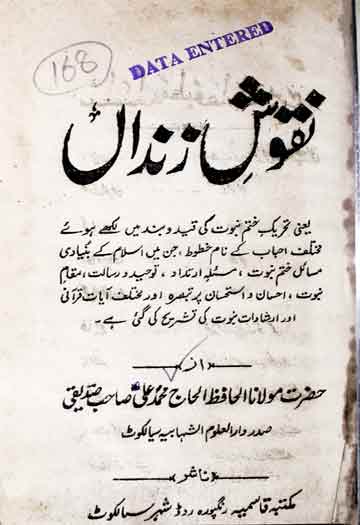 168
DATA ENTERED
نقوشِ زنداں
یعنی تحریک ختم نبوت کی قید و بند میں لکھے ہوئے
مختلف احباب کے نام خطوط، جن میں اسلام کے بنیادی
مسائل ختم نبوت، مسئلہ ارتداد، توحید و رسالت، مقامِ
نبوت، احسان و استحسان پر تبصرہ اور مختلف آیات قرآنی
اور ارشادات نبوت کی تشریح کی گئی ہے۔
از
حضرت مولانا الحافظ الحاج محمد علی صاحب صدیقی
صدر دارالعلوم الشہابیہ سیالکوٹ
ناشر
مکتبہ قاسمیہ رنگپورہ روڈ شہر سیالکوٹ